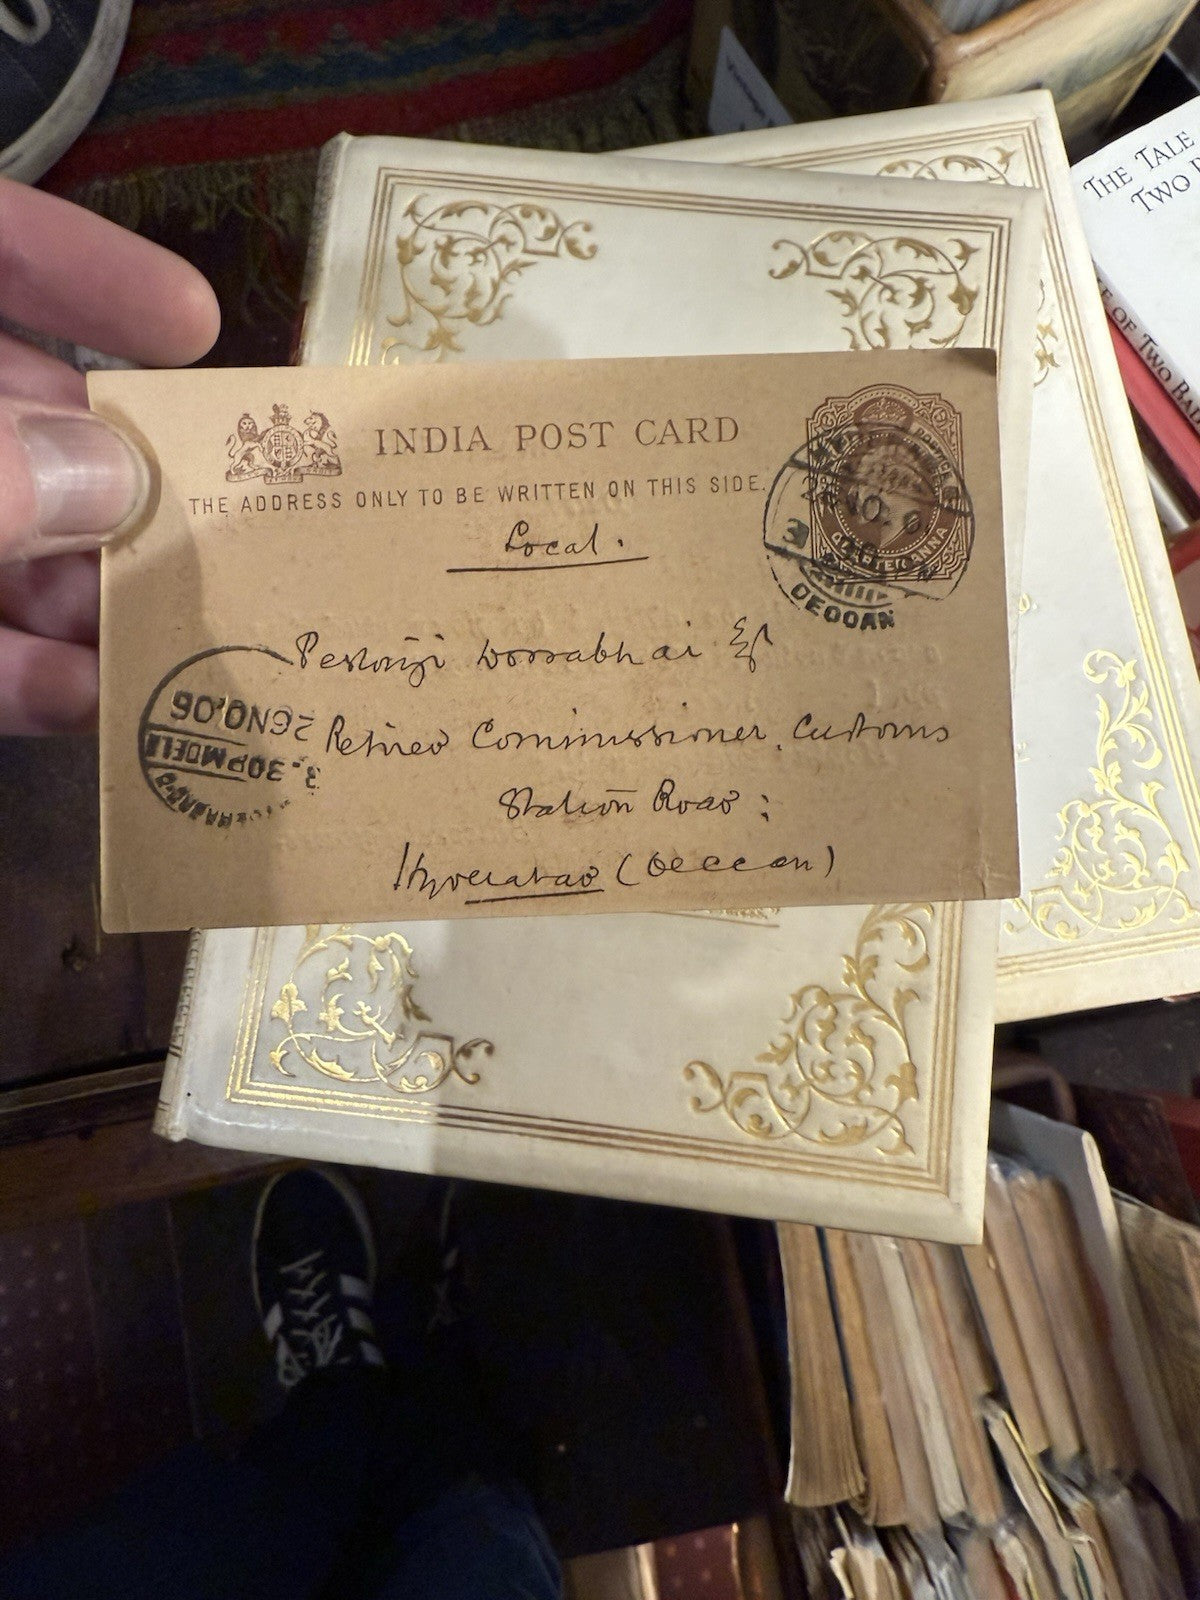 THE TALE
TWO B
E OF TWO BAD
INDIA POST CARD
THE ADDRESS ONLY TO BE WRITTEN ON THIS SIDE.
QUARTER ANNA
NO. 6
3
DECCAN
Local.
Pestonji Dorrabhai Esqr
Retired Commissioner, Customs
Station Road:
Hyderabad (Deccan)
26NO.06
3.30PM DELY